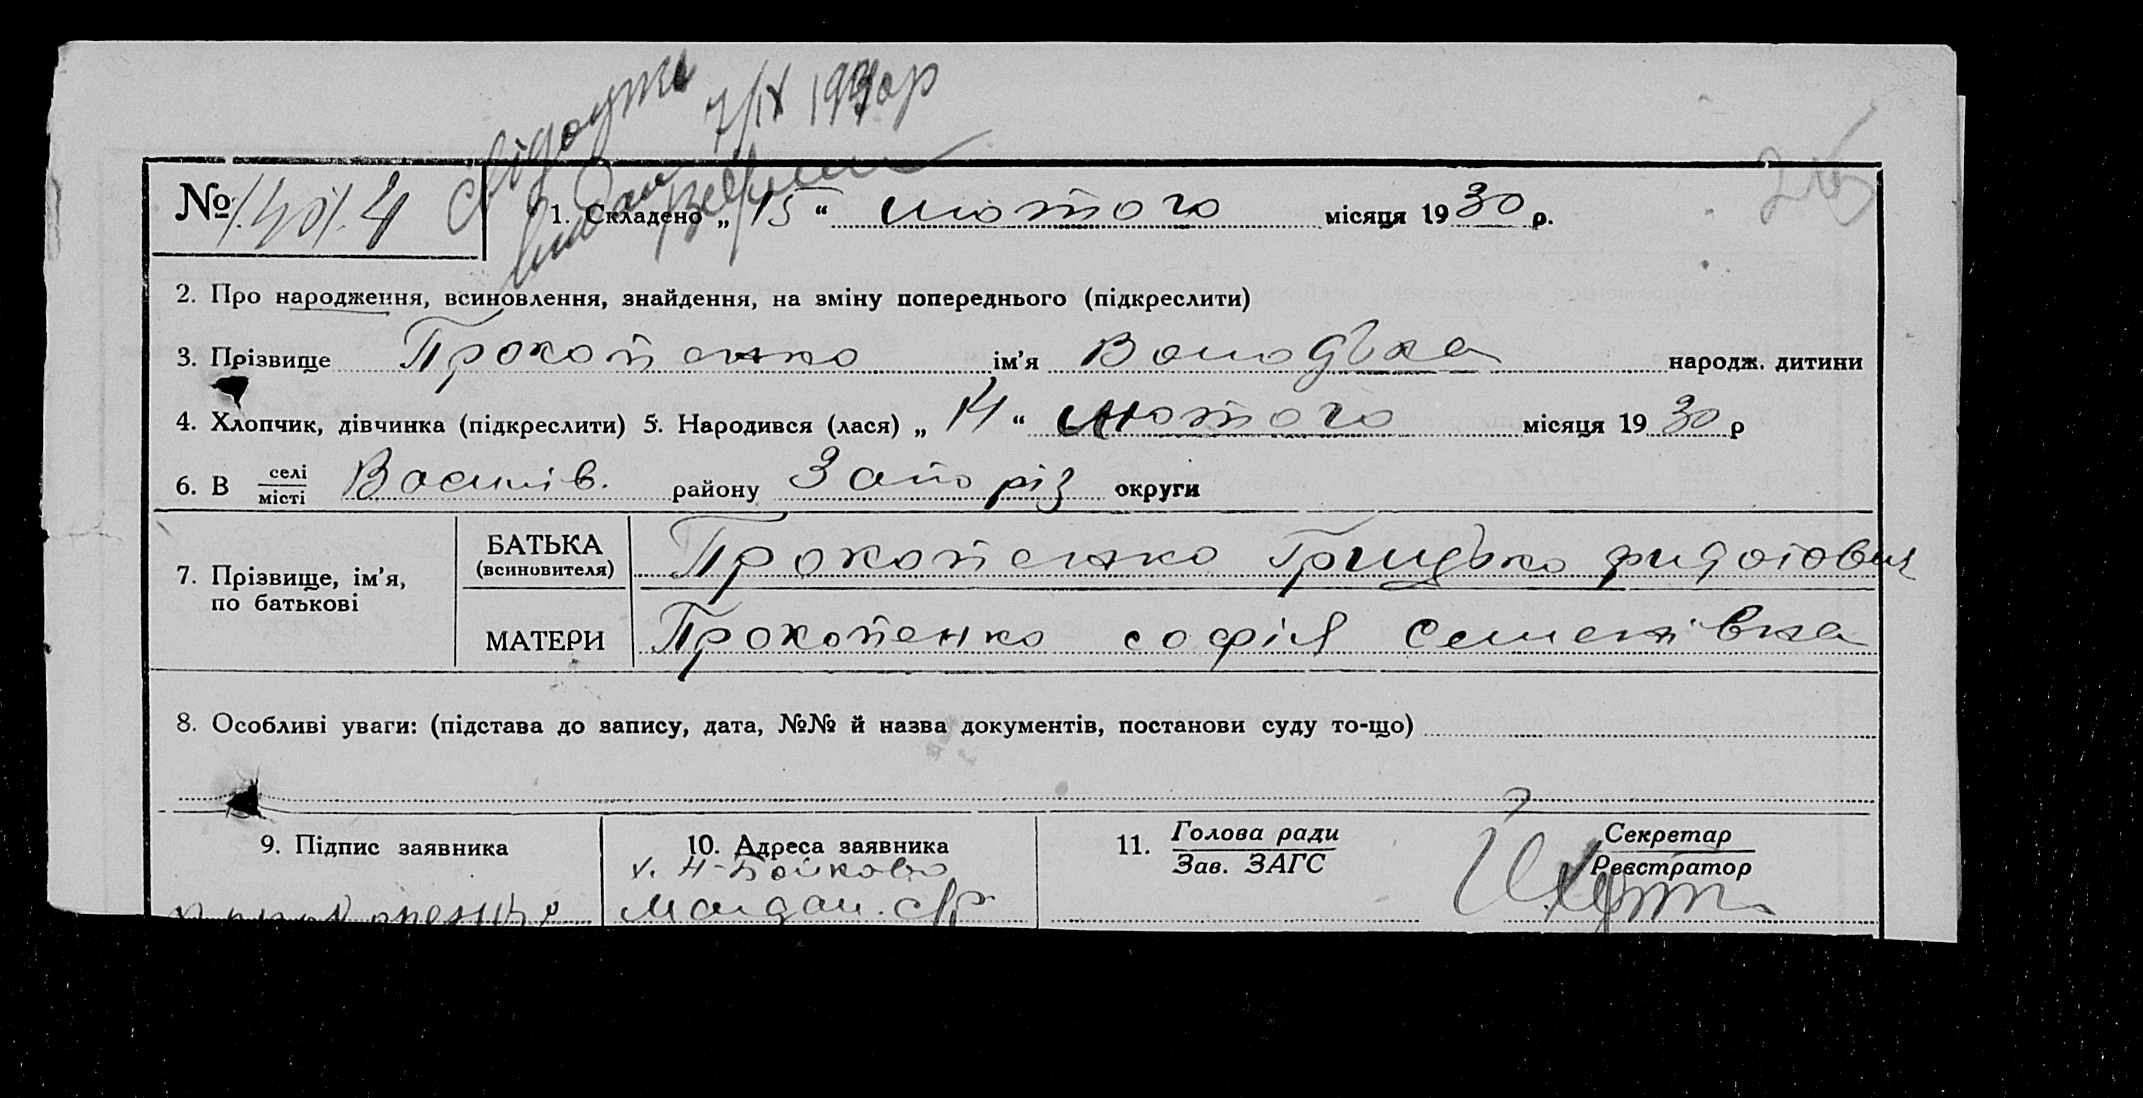 свідоцтво
7/IX 1930р
видан
26
№ 4
1. Складено „15“ лютого місяця 1930 р.
2. Про народження, всиновлення, знайдення, на зміну попереднього (підкреслити)
3. Прізвище Прокопенко ім’я народж. дитини
4. Хлопчик, дівчинка (підкреслити) 5. Народився (лася) „14“ лютого місяця 1930 р
6. В селі місті Василів. району Запоріз округи
7. Прізвище, ім’я, по батькові
БАТЬКА (всиновителя) Прокопенко Грицько Фидотович
МАТЕРИ Прокопенко софія Семенівна
8. Особливі уваги: (підстава до запису, дата, №№ й назва документів, постанови суду то-що)
9. Підпис заявника
10. Адреса заявника
11. Голова ради Зав. ЗАГС
Секретар Реєстратор
х. Н-Бойково
Прокопенко
Майдан. с/р